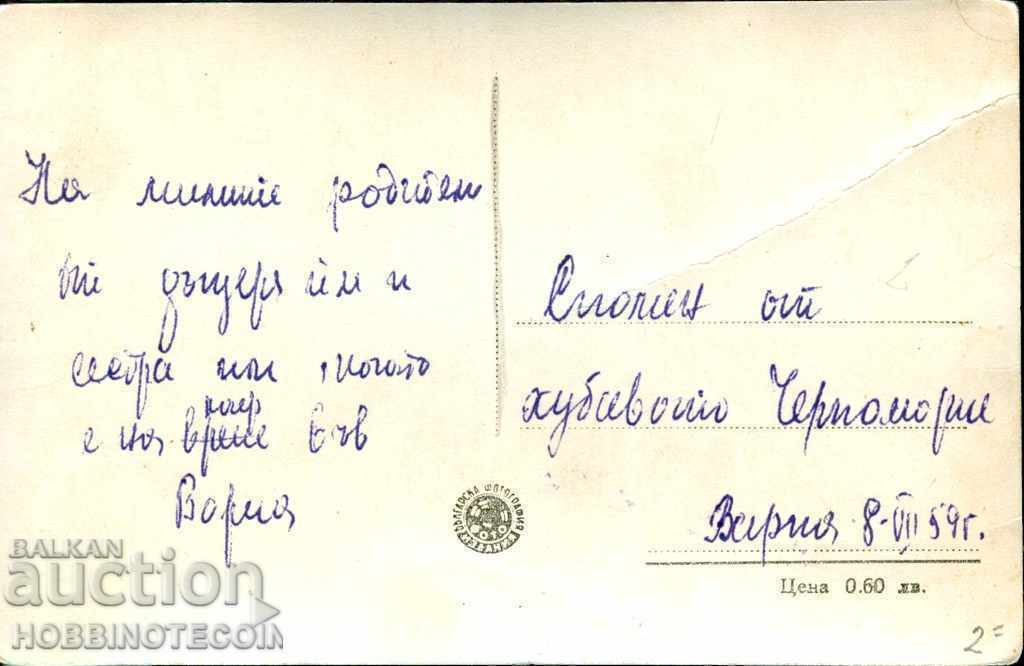 На милите родители
от дъщеря им и
сестра ни, когато
е на
море във
Варна
Спомен от
хубавото Черноморие
Варна 8-VII 59 г.
БЪЛГАРСКА ФОТОГРАФИЯ
Цена 0.60 лв.
2=
BALKAN
auction
HOBBINOTECOIN